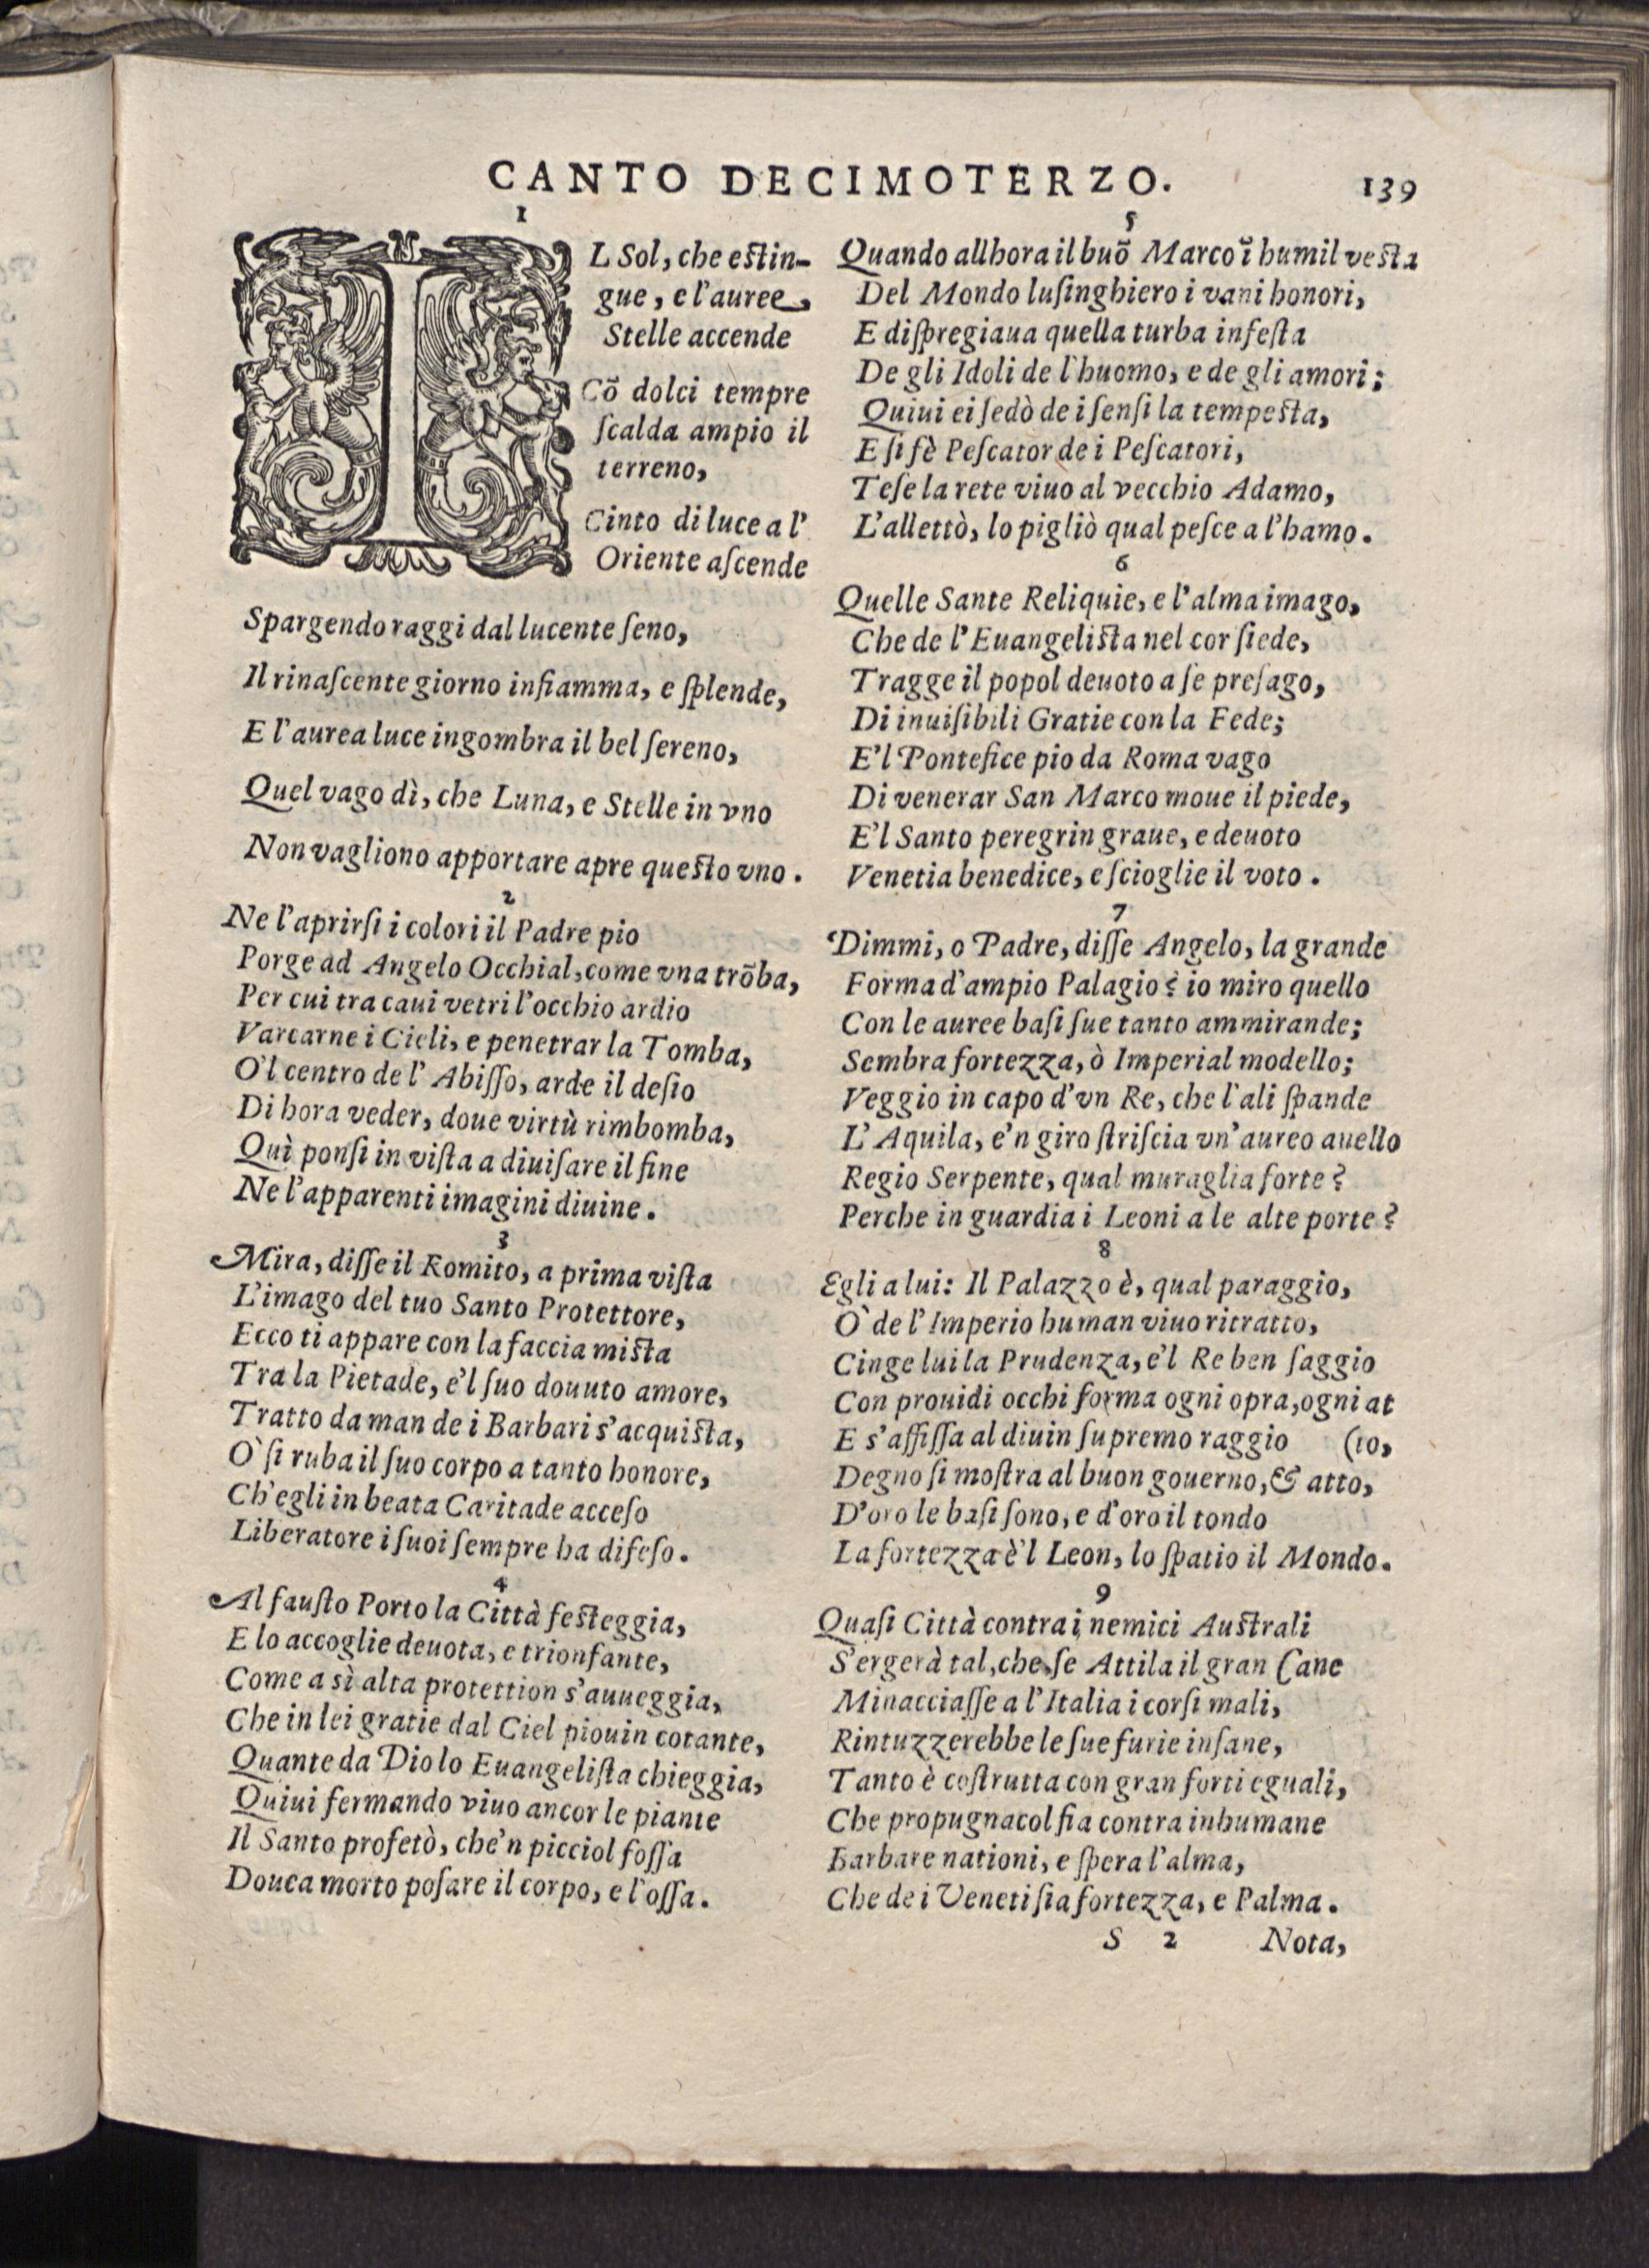 CANTO DECIMOTERZO. 139
1
IL Sol, che estin-
gue, e l'auree
Stelle accende
Cō dolci tempre
ſcalda ampio il
terreno,
Cinto di luce a l'
Oriente aſcende
Spargendo raggi dal lucente ſeno,
Il rinaſcente giorno infiamma, e ſplende,
E l'aurea luce ingombra il bel ſereno,
Quel vago dì, che Luna, e Stelle in vno
Non vagliono apportare apre questo vno.
2
Ne l'aprirſi i colori il Padre pio
Porge ad Angelo Occhial, come vna trōba,
Per cui tra caui vetri l'occhio ardio
Varcarne i Cieli, e penetrar la Tomba,
O'l centro de l' Abiſſo, arde il deſio
Di hora veder, doue virtù rimbomba,
Quì ponſi in viſta a diuiſare il fine
Ne l'apparenti imagini diuine.
3
Mira, diſſe il Romito, a prima viſta
L'imago del tuo Santo Protettore,
Ecco ti appare con la faccia mista
Tra la Pietade, e'l ſuo douuto amore,
Tratto da man de i Barbari s'acquista,
Ò ſi ruba il ſuo corpo a tanto honore,
Ch'egli in beata Caritade acceſo
Liberatore i ſuoi ſempre ha difeſo.
4
Al fauſto Porto la Città festeggia,
E lo accoglie deuota, e trionfante,
Come a sì alta protettion s'auueggia,
Che in lei gratie dal Ciel piouin cotante,
Quante da Dio lo Euangeliſta chieggia,
Quiui fermando viuo ancor le piante
Il Santo profetò, che'n picciol foſſa
Douea morto poſare il corpo, e l'oſſa.
5
Quando allhora il buō Marco ī humil vesta
Del Mondo luſinghiero i vani honori,
E diſpregiaua quella turba infeſta
De gli Idoli de l'huomo, e de gli amori;
Quiui ei ſedò de i ſenſi la tempesta,
E ſi fè Peſcator de i Peſcatori,
Teſe la rete viuo al vecchio Adamo,
L'allettò, lo pigliò qual peſce a l'hamo.
6
Quelle Sante Reliquie, e l'alma imago,
Che de l'Euangelista nel cor ſiede,
Tragge il popol deuoto a ſe preſago,
Di inuiſibili Gratie con la Fede;
E'l Pontefice pio da Roma vago
Di venerar San Marco moue il piede,
E'l Santo peregrin graue, e deuoto
Venetia benedice, e ſcioglie il voto.
7
Dimmi, o Padre, diſſe Angelo, la grande
Forma d'ampio Palagio? io miro quello
Con le auree baſi ſue tanto ammirande;
Sembra fortezza, ò Imperial modello;
Veggio in capo d'vn Re, che l'ali ſpande
L'Aquila, e'n giro ſtriſcia vn'aureo auello
Regio Serpente, qual muraglia forte?
Perche in guardia i Leoni a le alte porte?
8
Egli a lui: Il Palazzo è, qual paraggio,
Ò de l'Imperio human viuo ritratto,
Cinge lui la Prudenza, e'l Re ben ſaggio
Con prouidi occhi forma ogni opra, ogni at
E s'affiſſa al diuin ſupremo raggio (to,
Degno ſi moſtra al buon gouerno, & atto,
D'oro le baſi ſono, e d'oro il tondo
La fortezza è'l Leon, lo ſpatio il Mondo.
9
Quaſi Città contra i nemici Australi
S'ergerà tal, che ſe Attila il gran Cane
Minacciaſſe a l'Italia i corſi mali,
Rintuzzerebbe le ſue furie inſane,
Tanto è coſtrutta con gran forti eguali,
Che propugnacol fia contra inhumane
Barbare nationi, e ſpera l'alma,
Che de i Veneti ſia fortezza, e Palma.
S 2 Nota,